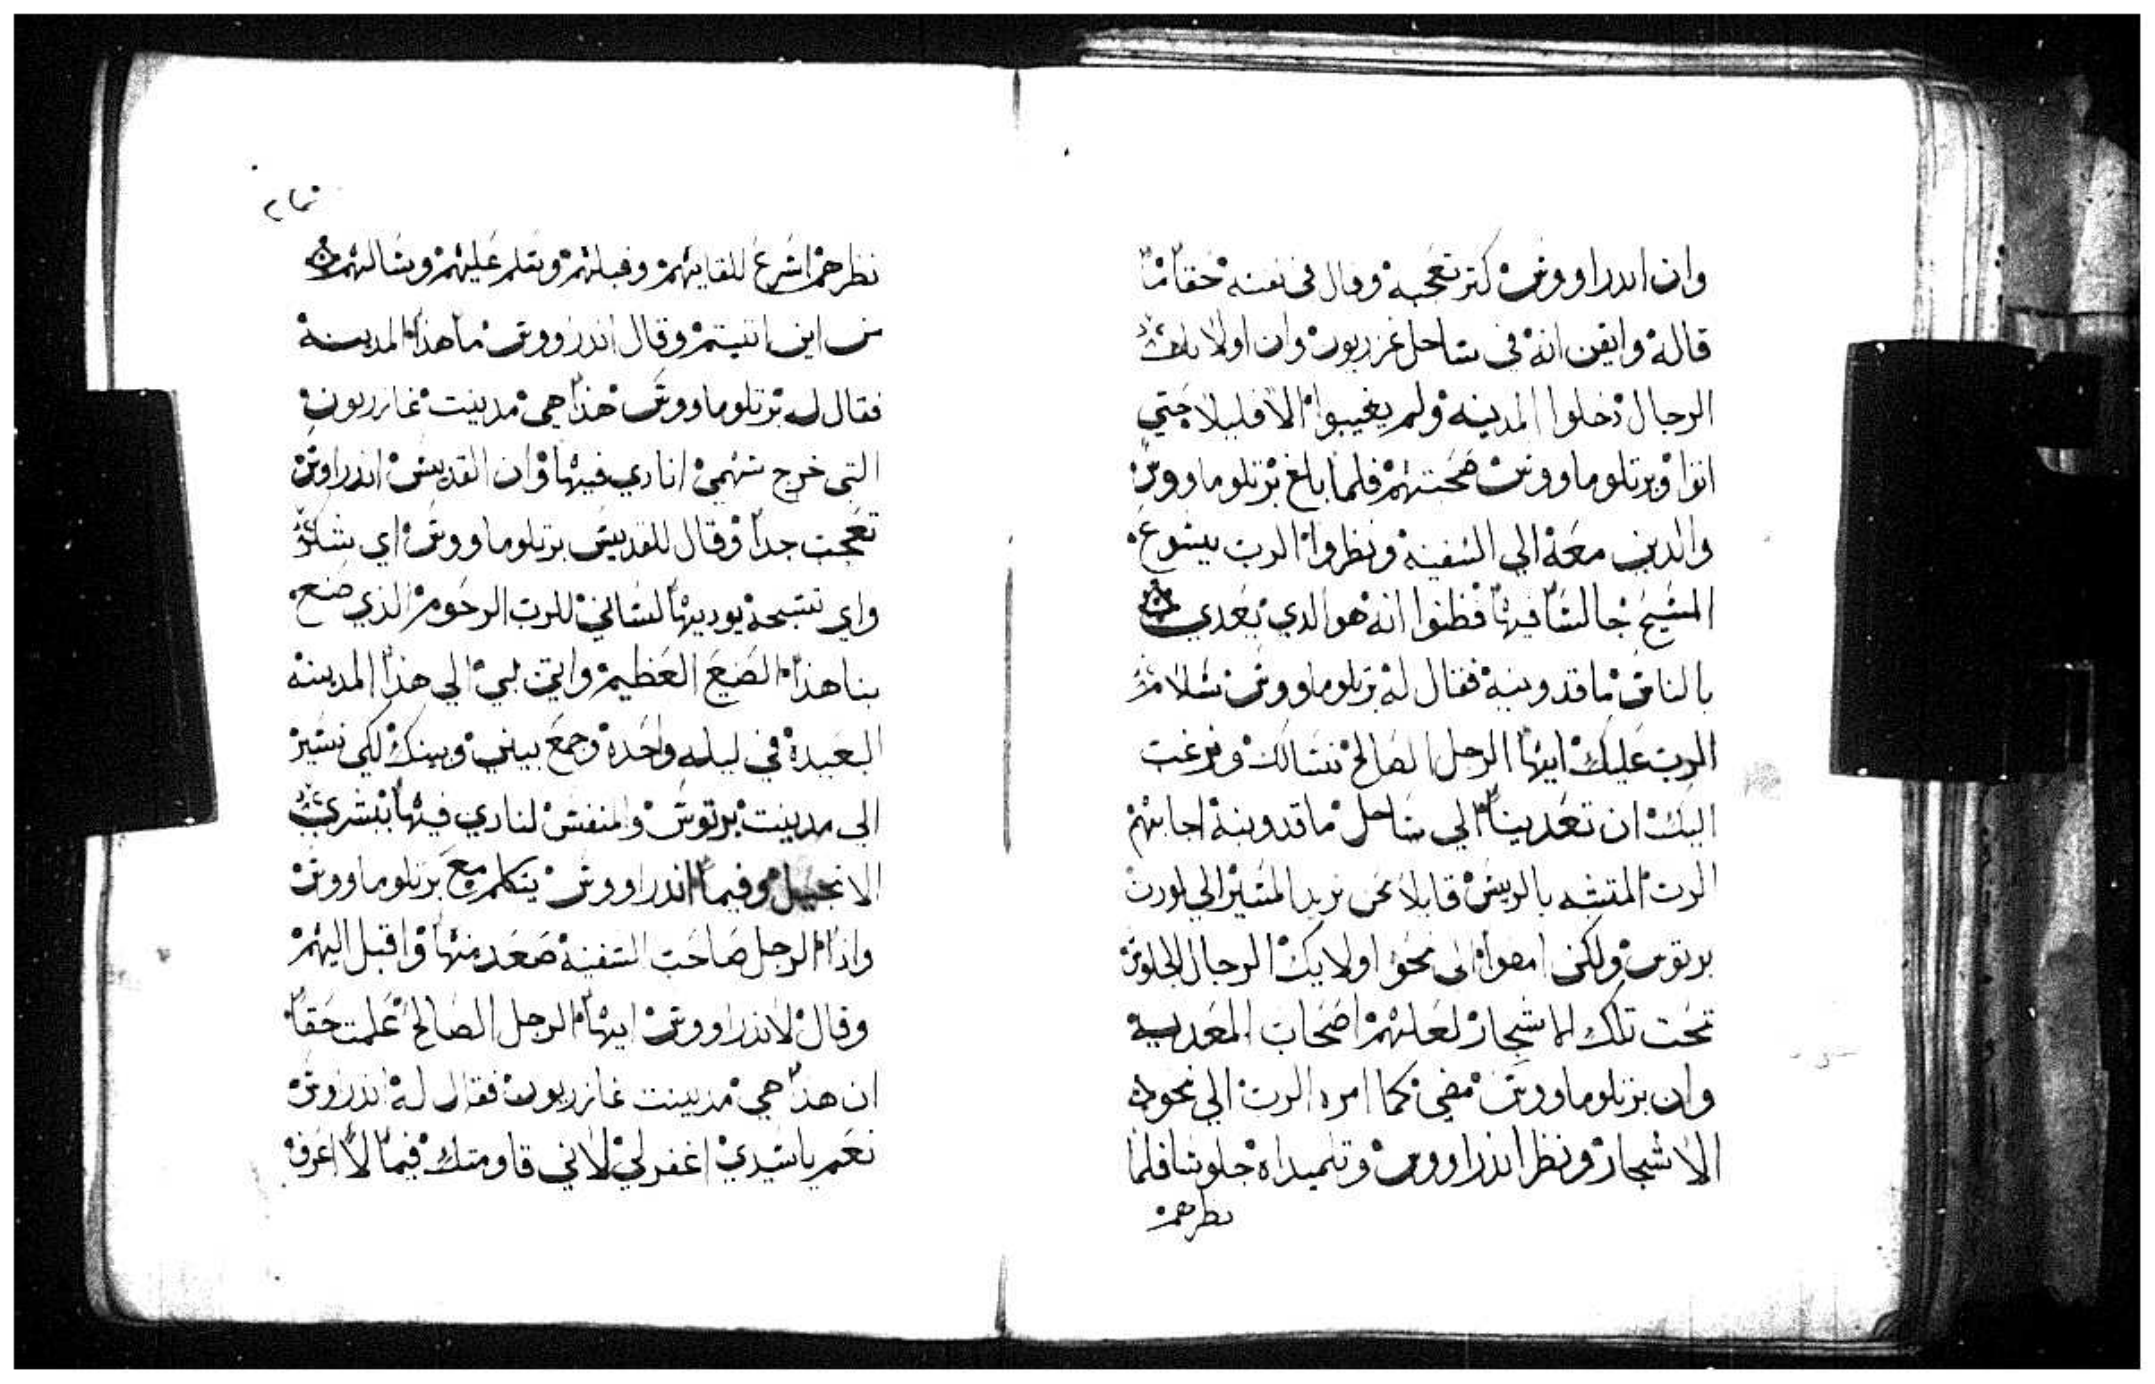 وان اندراووس كتر تعجبه وقال في نفسه حقا ما
قاله وايقن انه في ساحل غزريون وان اولايك
الرجال دخلوا المدينه ولم يغيبوا الا قليلا حتي
اتوا وبرتلوماووس صحبتهم فلما بلغ برتلوماووس
والدين معه الي السفينه ونظروا الرب يسوع
المسيح جالسا فيها فظنوا انه هو الدي يعدي
بالناس ماقدونيه فقال له برتلوماووس سلام
الرب عليك ايها الرجل الصالح نسالك ونرغب
اليك ان تعدينا الي ساحل ماقدونية اجابهم
الرب المتشبه بالريس قايلا نحن نريد المسير الي بلورن
برتوس ولكن امضوا الى نحو اولايك الرجال الجلوس
تحت تلك الاشجار لعلهم اصحاب المعديه
وان برتلوماووس مضي كما امره الرب الي نحو
الاشجار ونظر اندراووس وتلميداه جلوسا فلما
نظرهم
نظرهم اسرع للقايهم وقبلهم وسلم عليهم وسالهم
من اين اتيتم وقال اندراووس ما هذا المدينة
فقال له برتلوماووس هذا هي مدينت غازريون
التي خرج سهمي انادي فيها وان القديس اندراوس
تعجب جدا وقال للقديس برتلوماووس اي شكر
واي تسبحة يوديها لساني للرب الرحوم الذي صنع
بنا هذا الصنع العظيم واتي بي الي هذا المدينة
البعيدة في ليله واحدة وجمع بيني وبينك لكي نسير
الى مدينت برتوس والمنفس لنادي فيها ببشري
الانجيل وفيما اندراووس يتكلم مع برتلوماووس
واذا الرجل صاحب السفينه صعد منها واقبل اليهم
وقال لاندراووس ايها الرجل الصالح علمت حقا
ان هذا هي مدينت غازريون فقال له اندراوس
نعم ياسيدي اغفر لي لاني قاومتك فيما لا اعرف